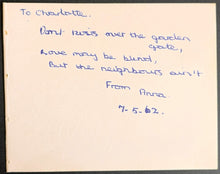 To Charlotte.
Dont kiss over the garden
gate,
Love may be blind,
But the neighbours ain't
From
Anna
7-5-62.